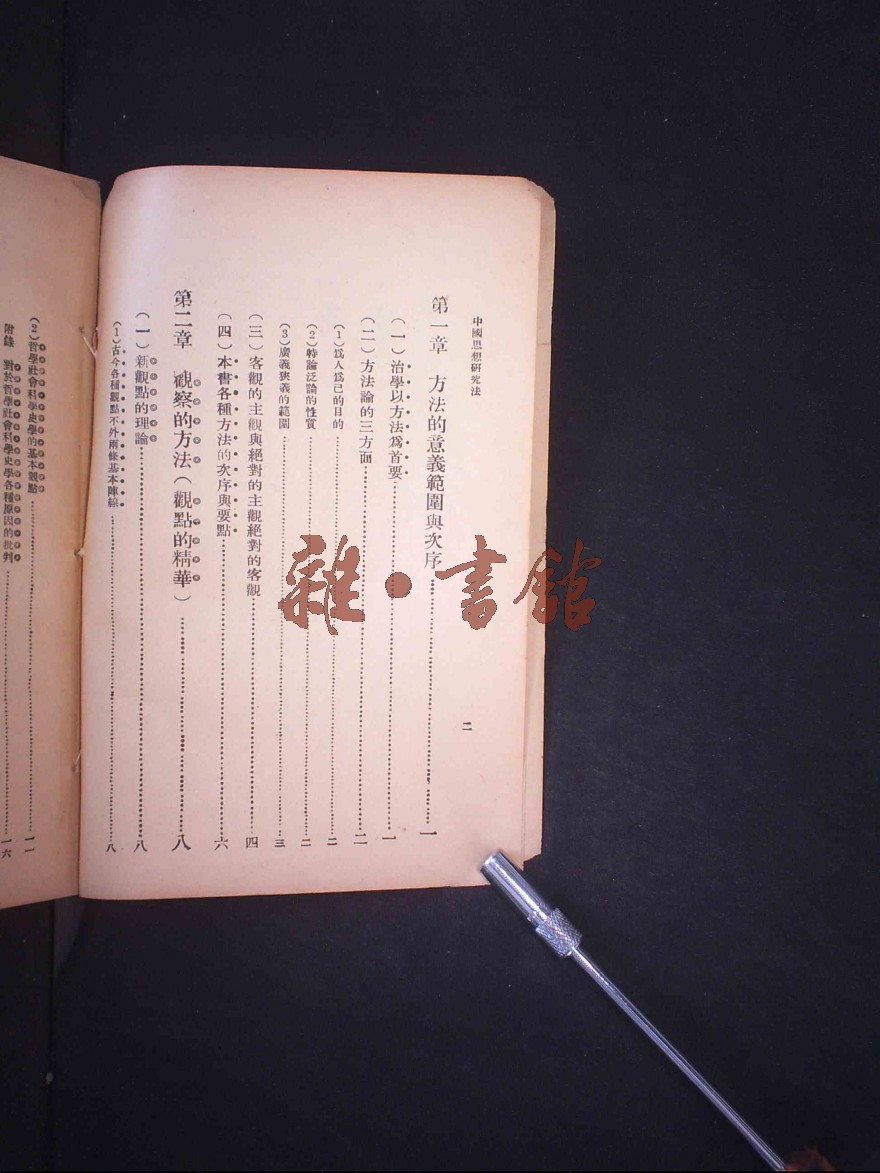 中國思想研究法
二
第一章 方法的意義範圍與次序…………一
(一)治學以方法爲首要…………一
(二)方法論的三方面…………二
(1)爲人爲己的目的…………二
(2)特論泛論的性質…………二
(3)廣義狹義的範圍…………三
(三)客觀的主觀與絕對的主觀絕對的客觀…………四
(四)本書各種方法的次序與要點…………六
第二章 觀察的方法(觀點的精華)…………八
(一)新觀點的理論…………八
(1)古今各種觀點不外兩條基本陣線…………八
(2)哲學社會科學史學的基本觀點…………一一
附錄 對於哲學社會科學史學各種原因的批判…………一六
雜·書館